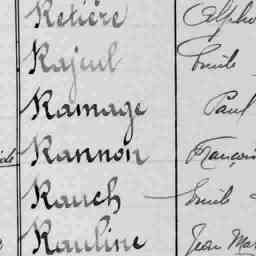 Ratière Alpho
Rajeul Emile
Ramage Paul
Rannon François
Rauch Emile
Rauline Jean Mar